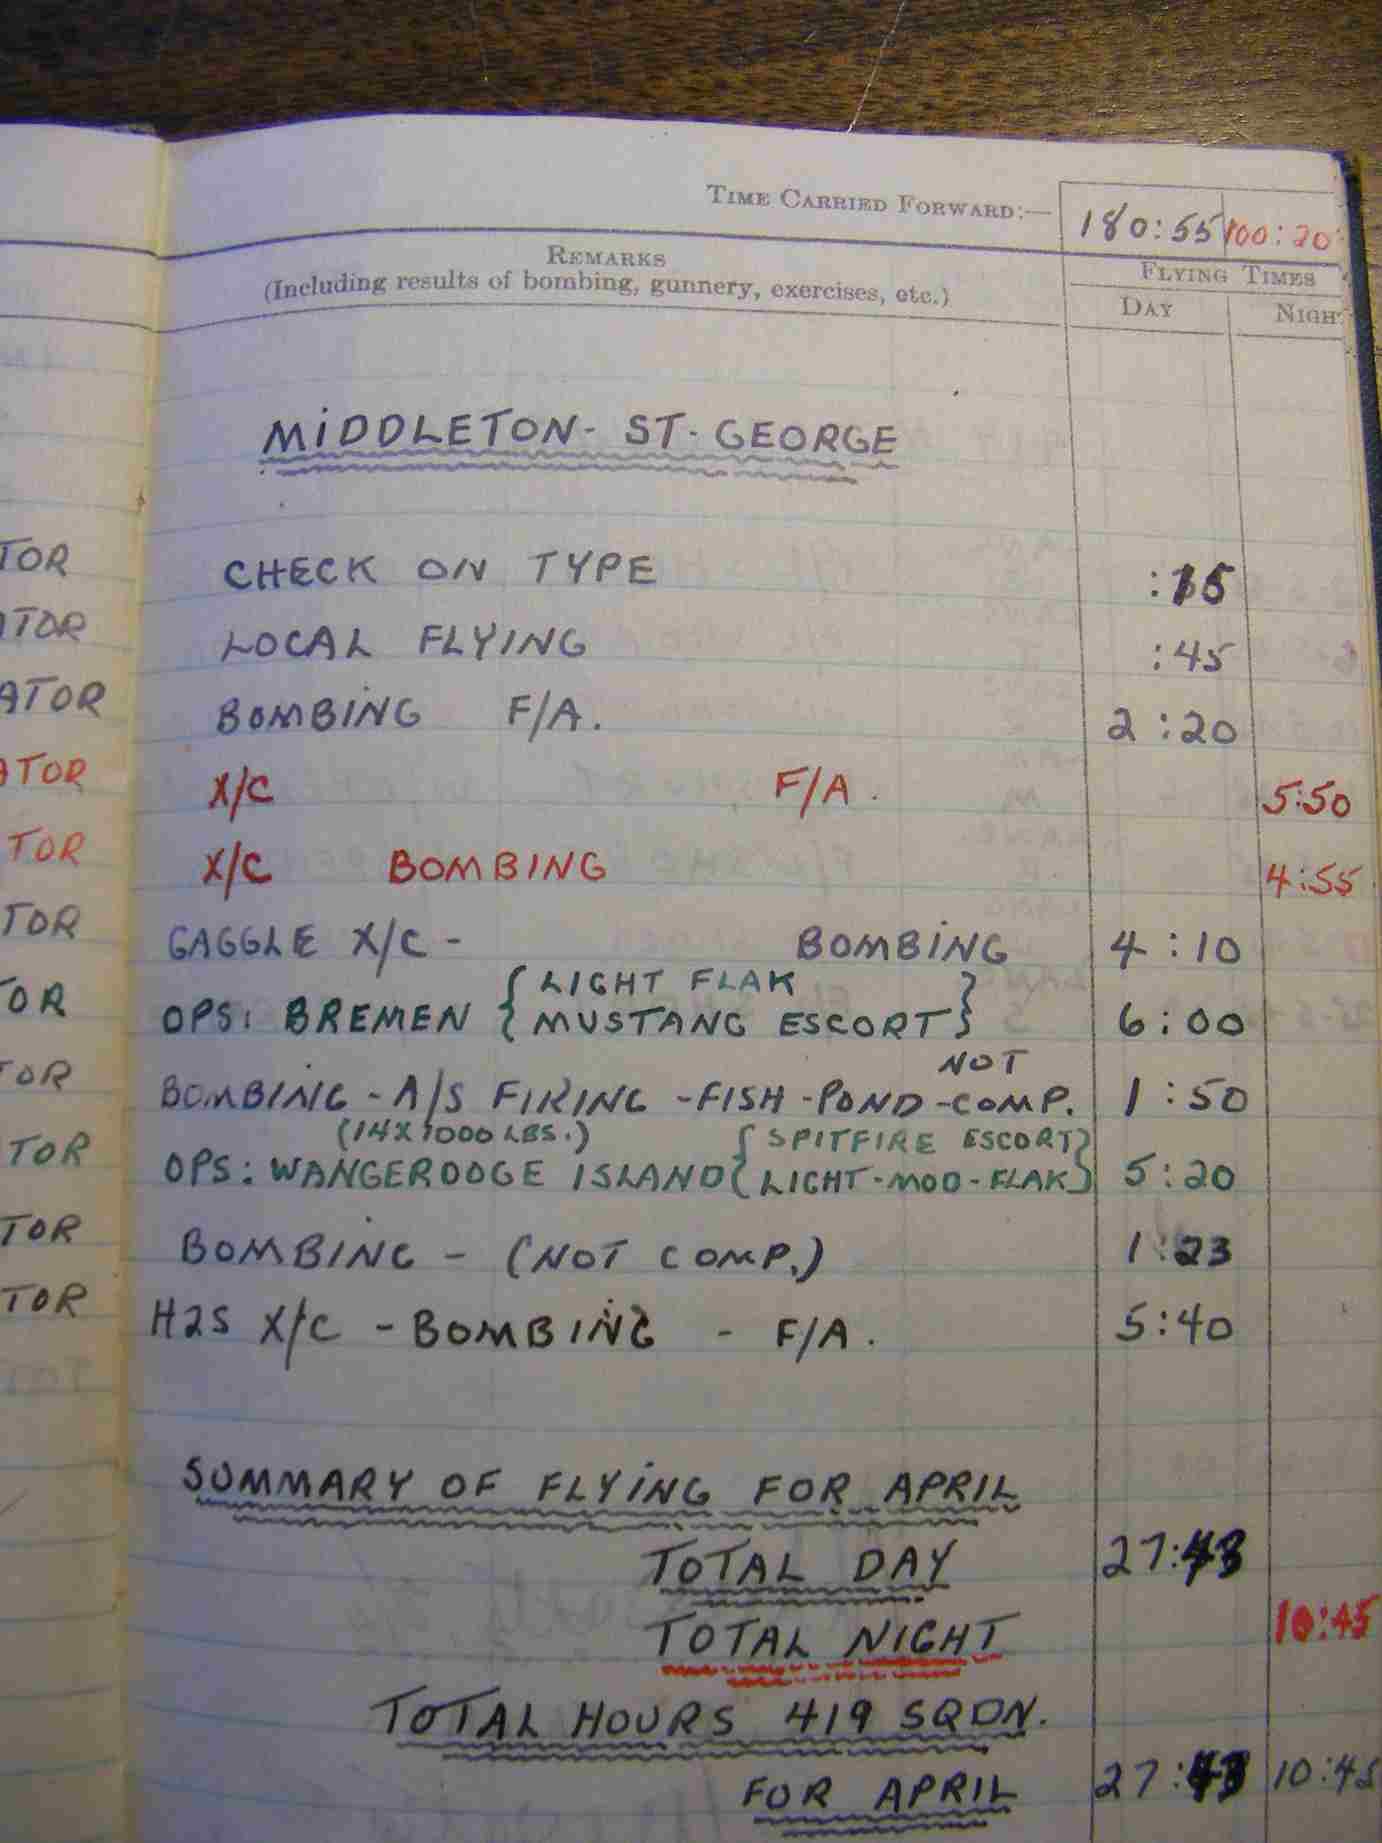 TIME CARRIED FORWARD:— 180:55 100:20
REMARKS
(Including results of bombing, gunnery, exercises, etc.)
FLYING TIMES
DAY NIGH
MIDDLETON-ST-GEORGE
TOR CHECK ON TYPE :15
ATOR LOCAL FLYING :45
ATOR BOMBING F/A. 2:20
ATOR X/C F/A. 5:50
TOR X/C BOMBING 4:55
TOR GAGGLE X/C - BOMBING 4:10
{LIGHT FLAK}
TOR OPS: BREMEN {MUSTANG ESCORT} 6:00
NOT
TOR BOMBING - A/S FIRING - FISH-POND-COMP. 1:50
(14X1000 LBS.) {SPITFIRE ESCORT}
TOR OPS: WANGEROOGE ISLAND {LIGHT-MOD-FLAK} 5:20
TOR BOMBING - (NOT COMP.) 1:23
TOR H2S X/C - BOMBING - F/A. 5:40
SUMMARY OF FLYING FOR APRIL
TOTAL DAY 27:43
TOTAL NIGHT 10:45
TOTAL HOURS 419 SQDN.
FOR APRIL 27:43 10:45